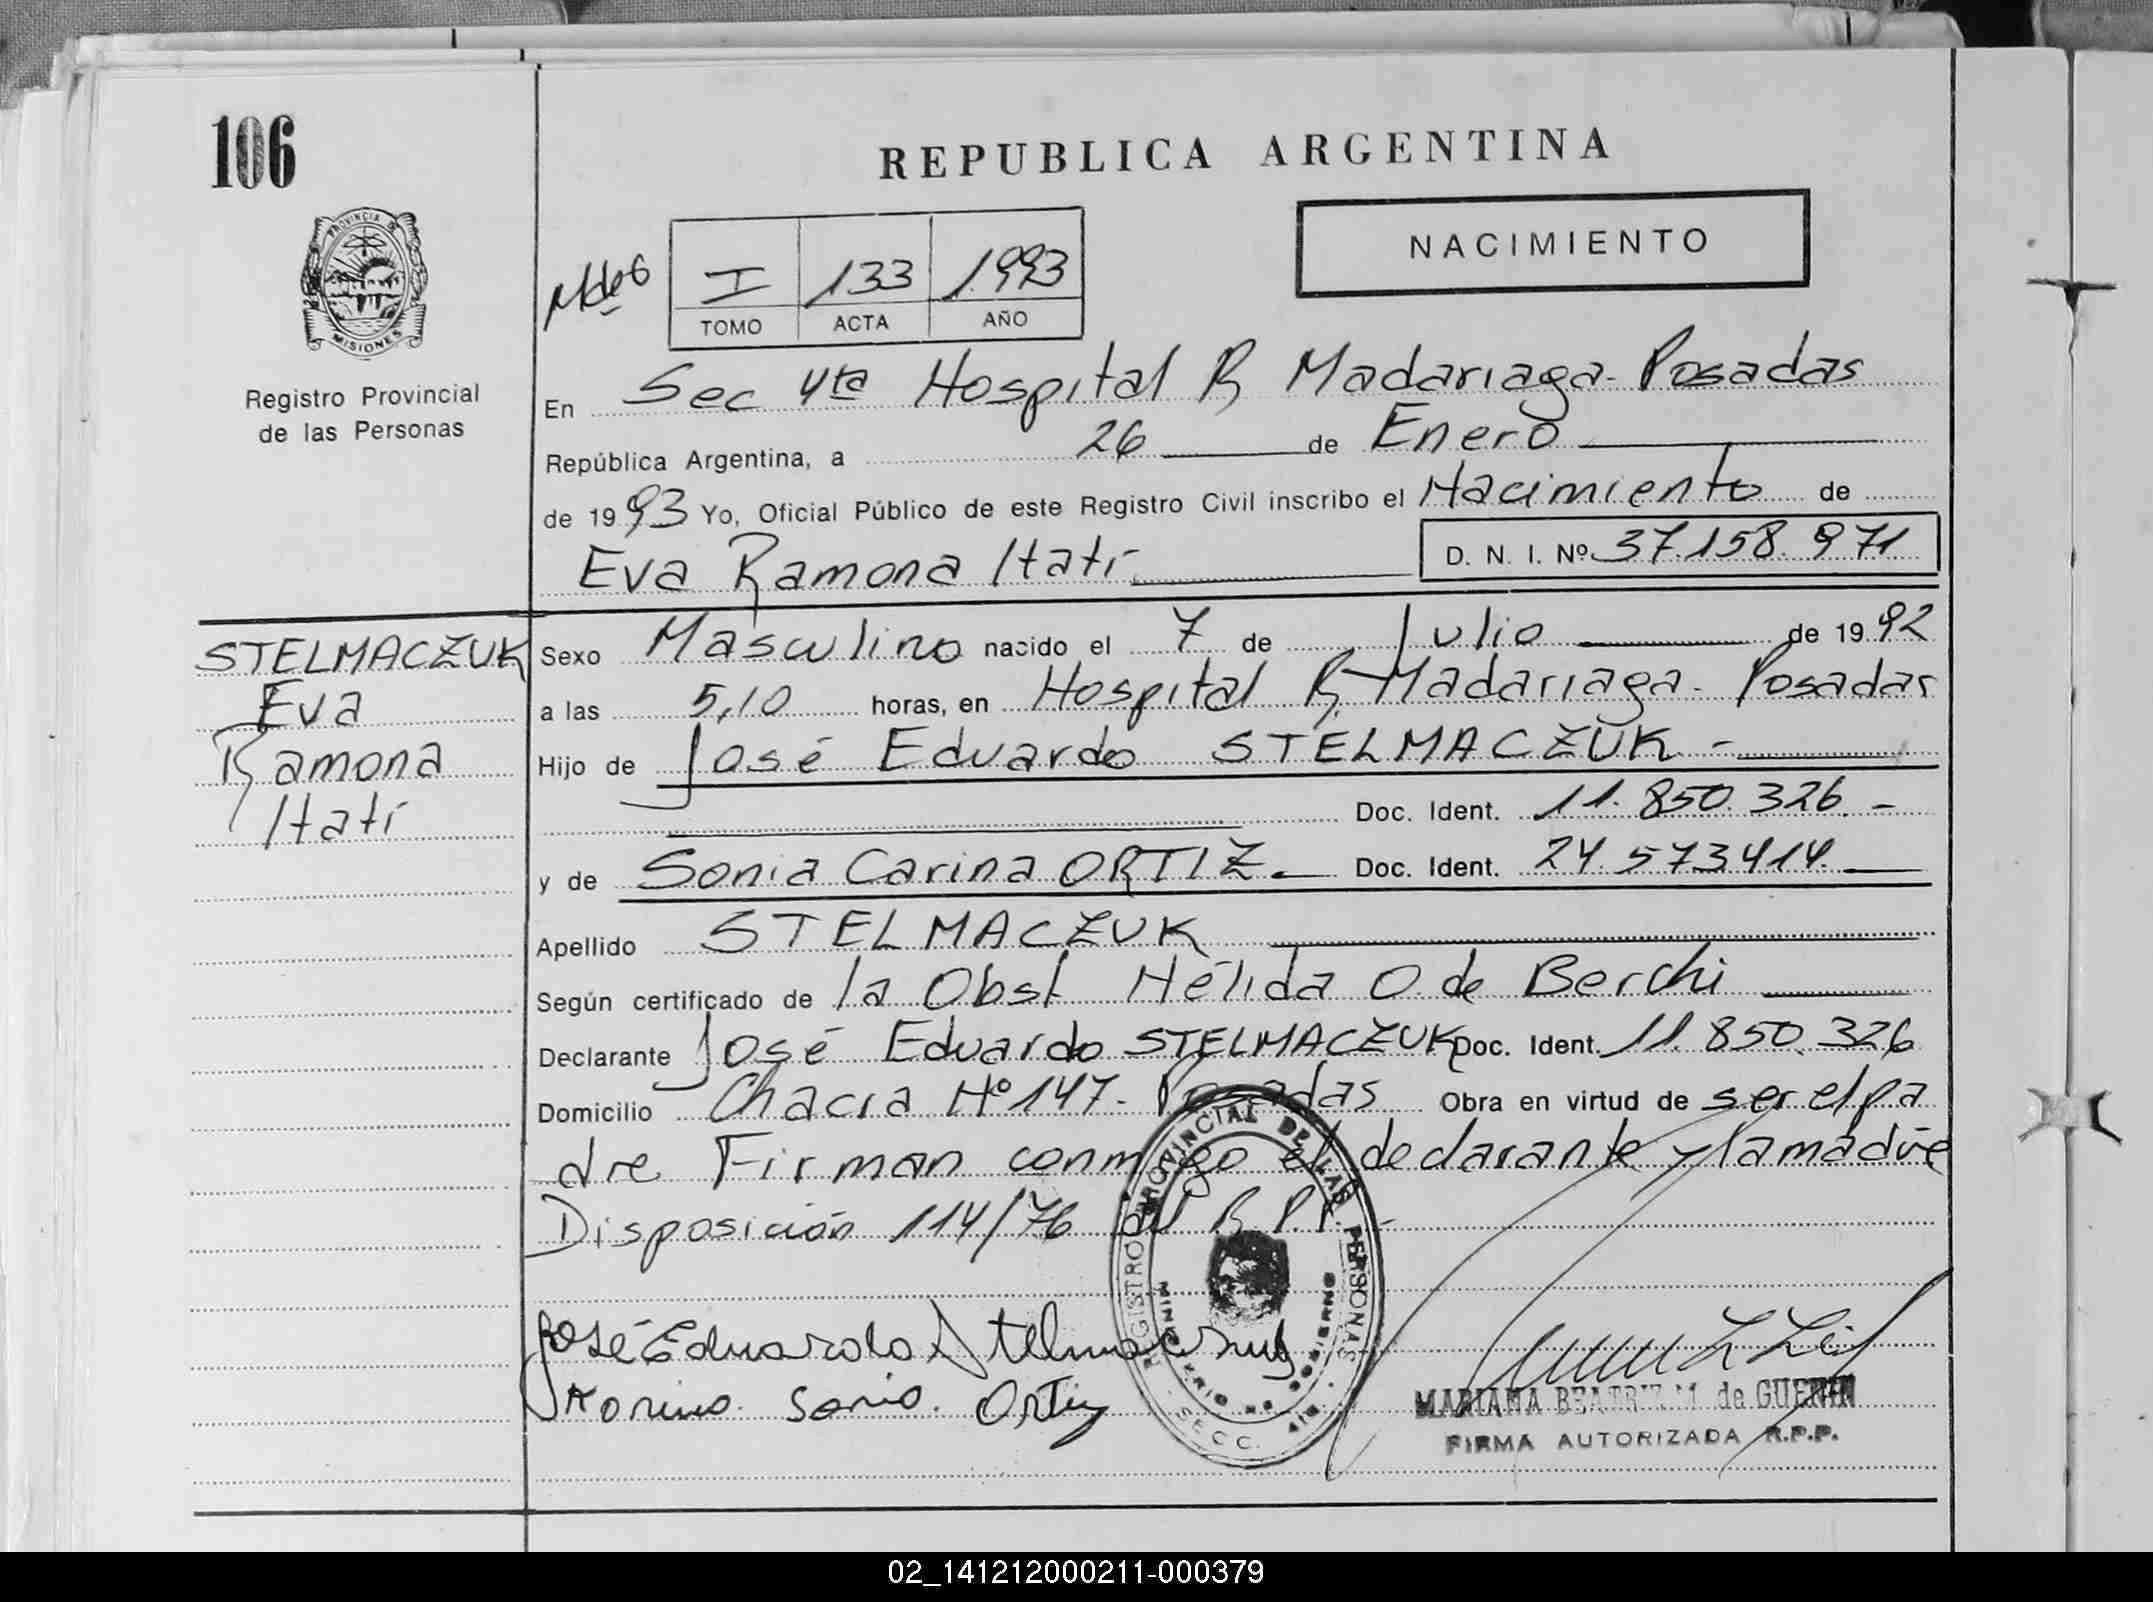 106
REPUBLICA ARGENTINA
PROVINCIA DE
MISIONES
I 133 1993
TOMO ACTA AÑO
NACIMIENTO
Registro Provincial
de las Personas
En Sec 4ta Hospital R Madariaga - Posadas
República Argentina, a 26 de Enero
de 1993 Yo, Oficial Público de este Registro Civil inscribo el Nacimiento de
Eva Ramona Itatí D. N. I. Nº 37.158.971
STELMACZUK
Eva
Ramona
Itatí
Sexo Masculino nacido el 7 de Julio de 1992
a las 5,10 horas, en Hospital R. Madariaga - Posadas
Hijo de José Eduardo STELMACZUK -
Doc. Ident. 11.850.326.-
y de Sonia Carina ORTIZ.- Doc. Ident. 24.573.414.
Apellido STELMACZUK
Según certificado de la Obst Nélida O. de Berchi
Declarante José Eduardo STELMACZUK Doc. Ident. 11.850.326
Domicilio Chacra Nº 147 - Posadas Obra en virtud de ser el pa
dre Firman conmigo el declarante y la madre
Disposición 114/76 del R.P.P.-
REGISTRO PROVINCIAL DE LAS PERSONAS
MINISTERIO DE GOBIERNO
SECC.
José Eduardo Stelmaczuk
Sonia Ortiz
MARIANA BEATRIZ M. de GUENIN
FIRMA AUTORIZADA R.P.P.
02_141212000211-000379